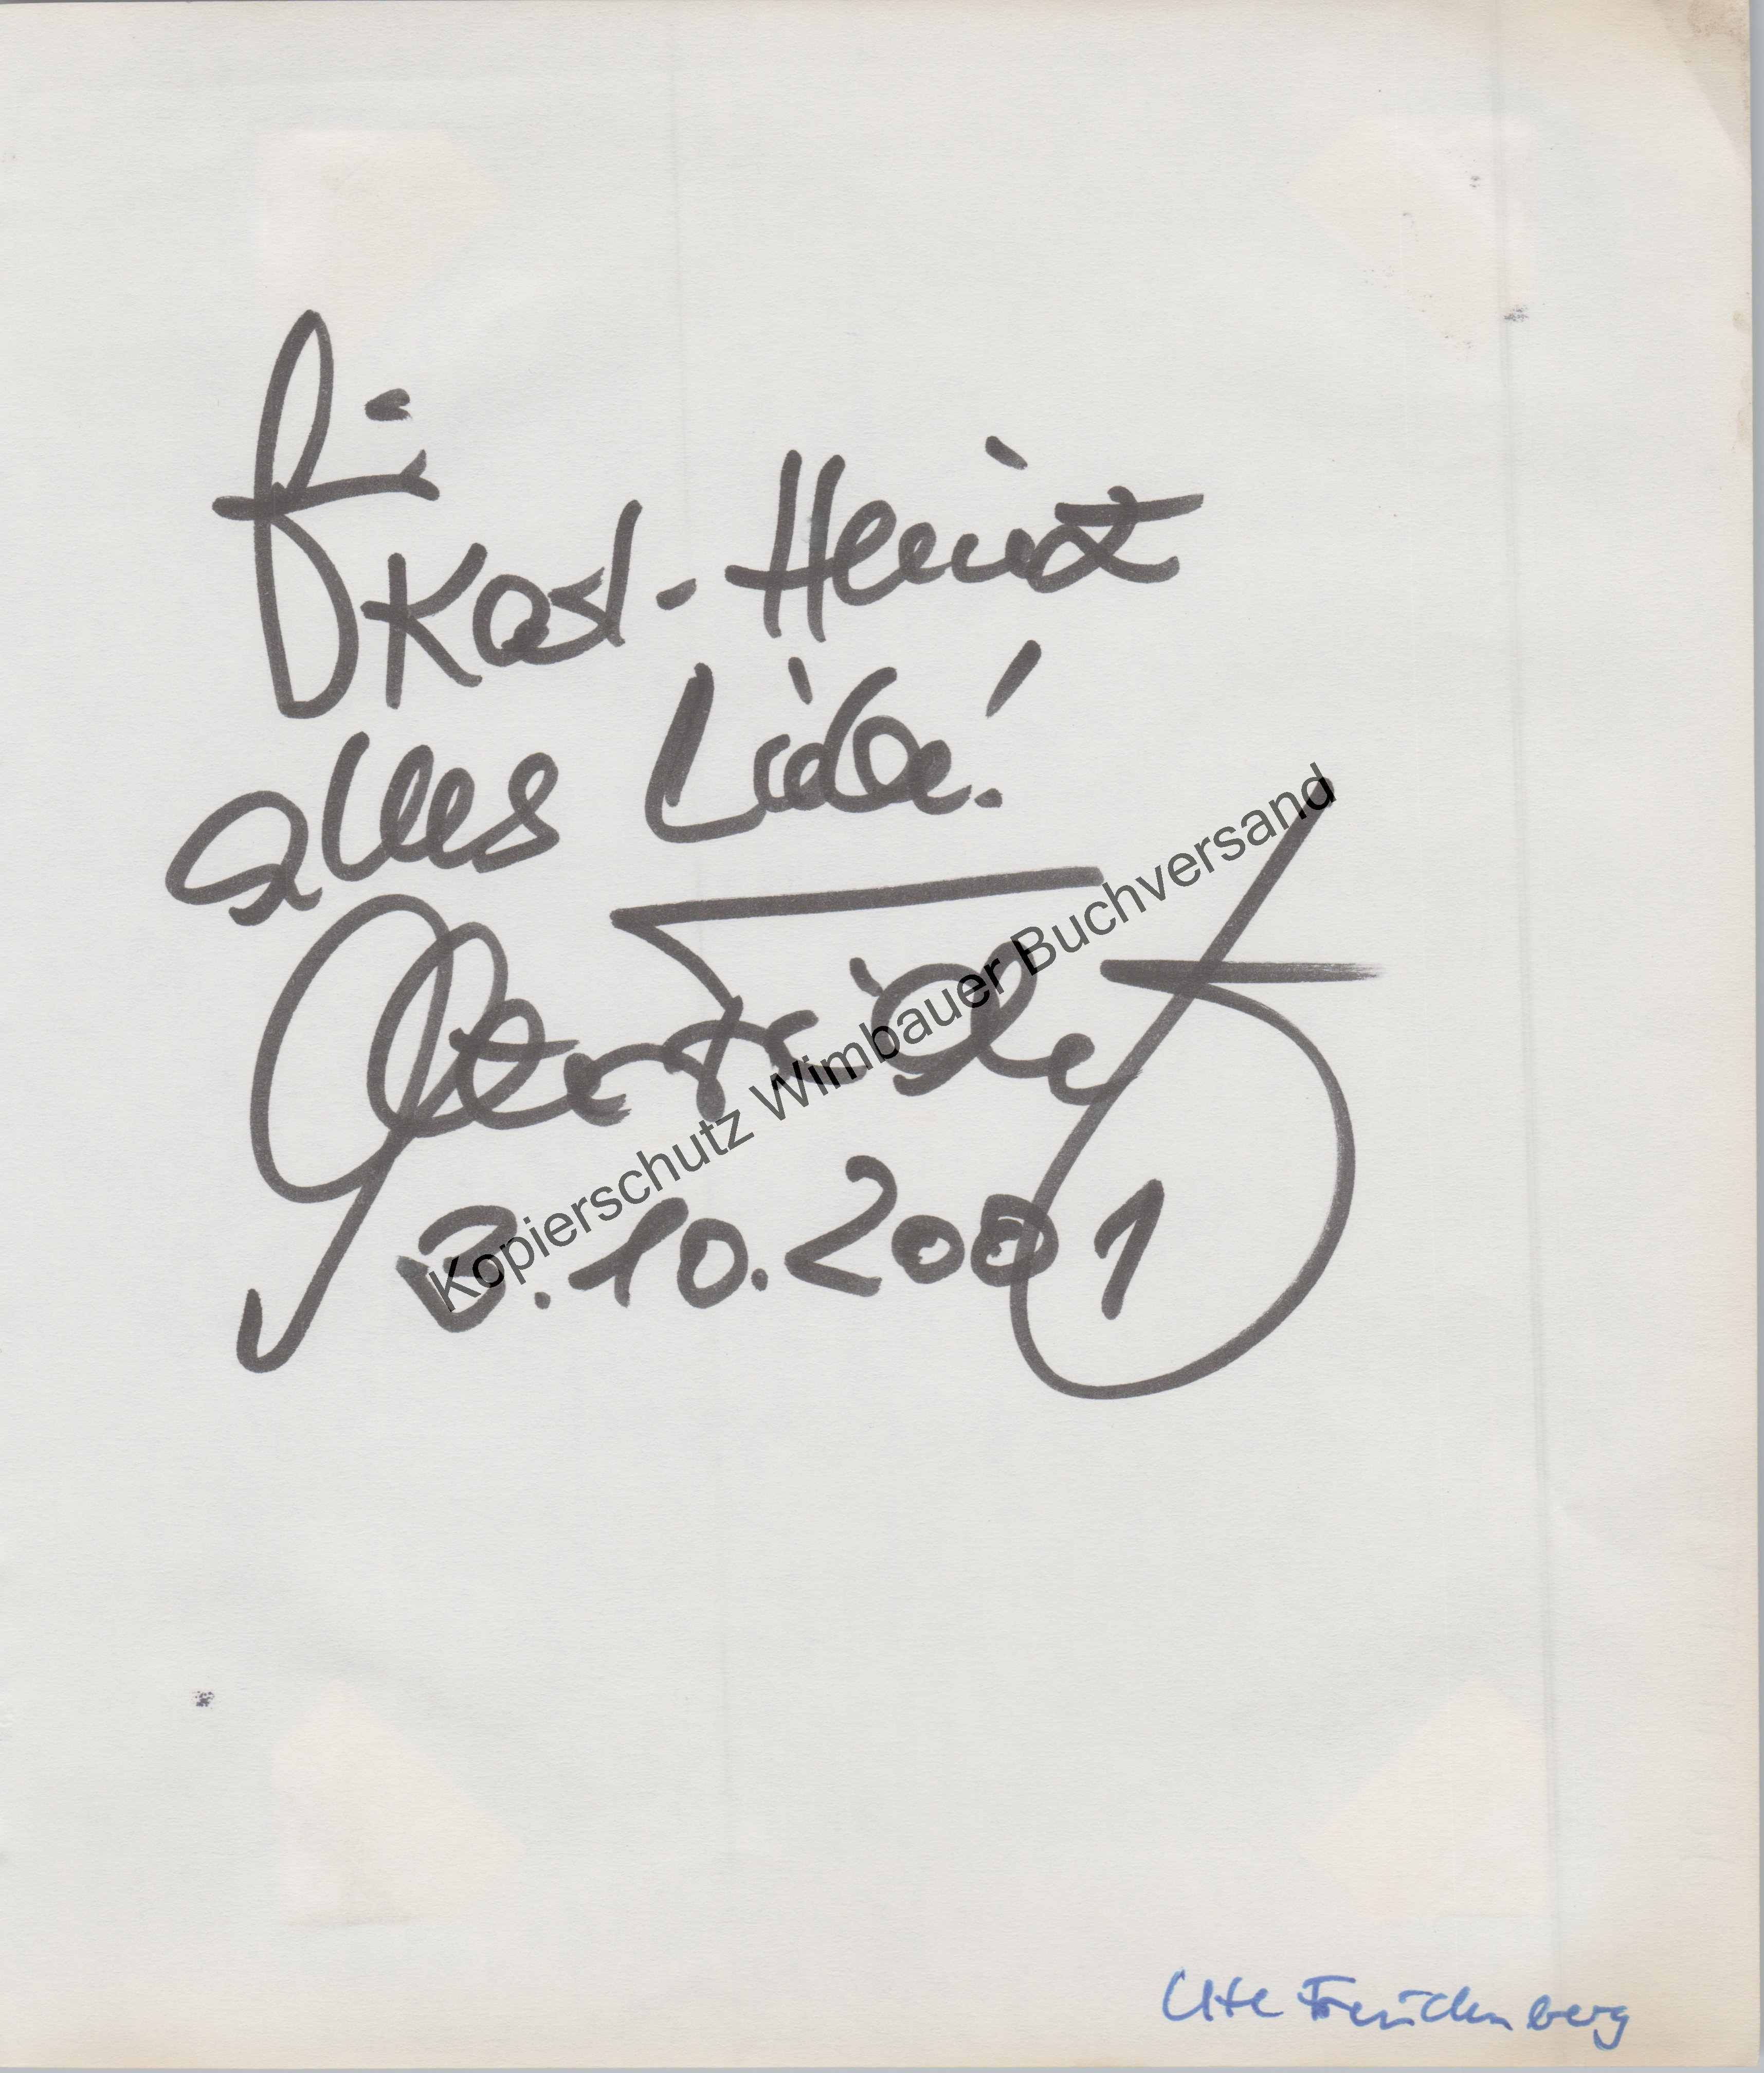 für
Karl-Heinz
alles Liebe!
Ute Freudenberg
3.10.2001
Kopierschutz Wimbauer Buchversand
Ute Freudenberg